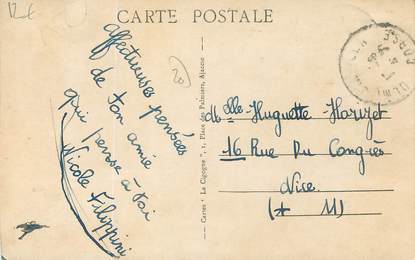 12€
CARTE POSTALE
Affectueuses pensées
de ton amie
qui pense à toi
Nicole Filippini
20
Cartes "La Cigogne", 1, Place des Palmiers, Ajaccio
CORSE
Mlle Huguette
16 Rue Du Congrès
Nice
(* M)